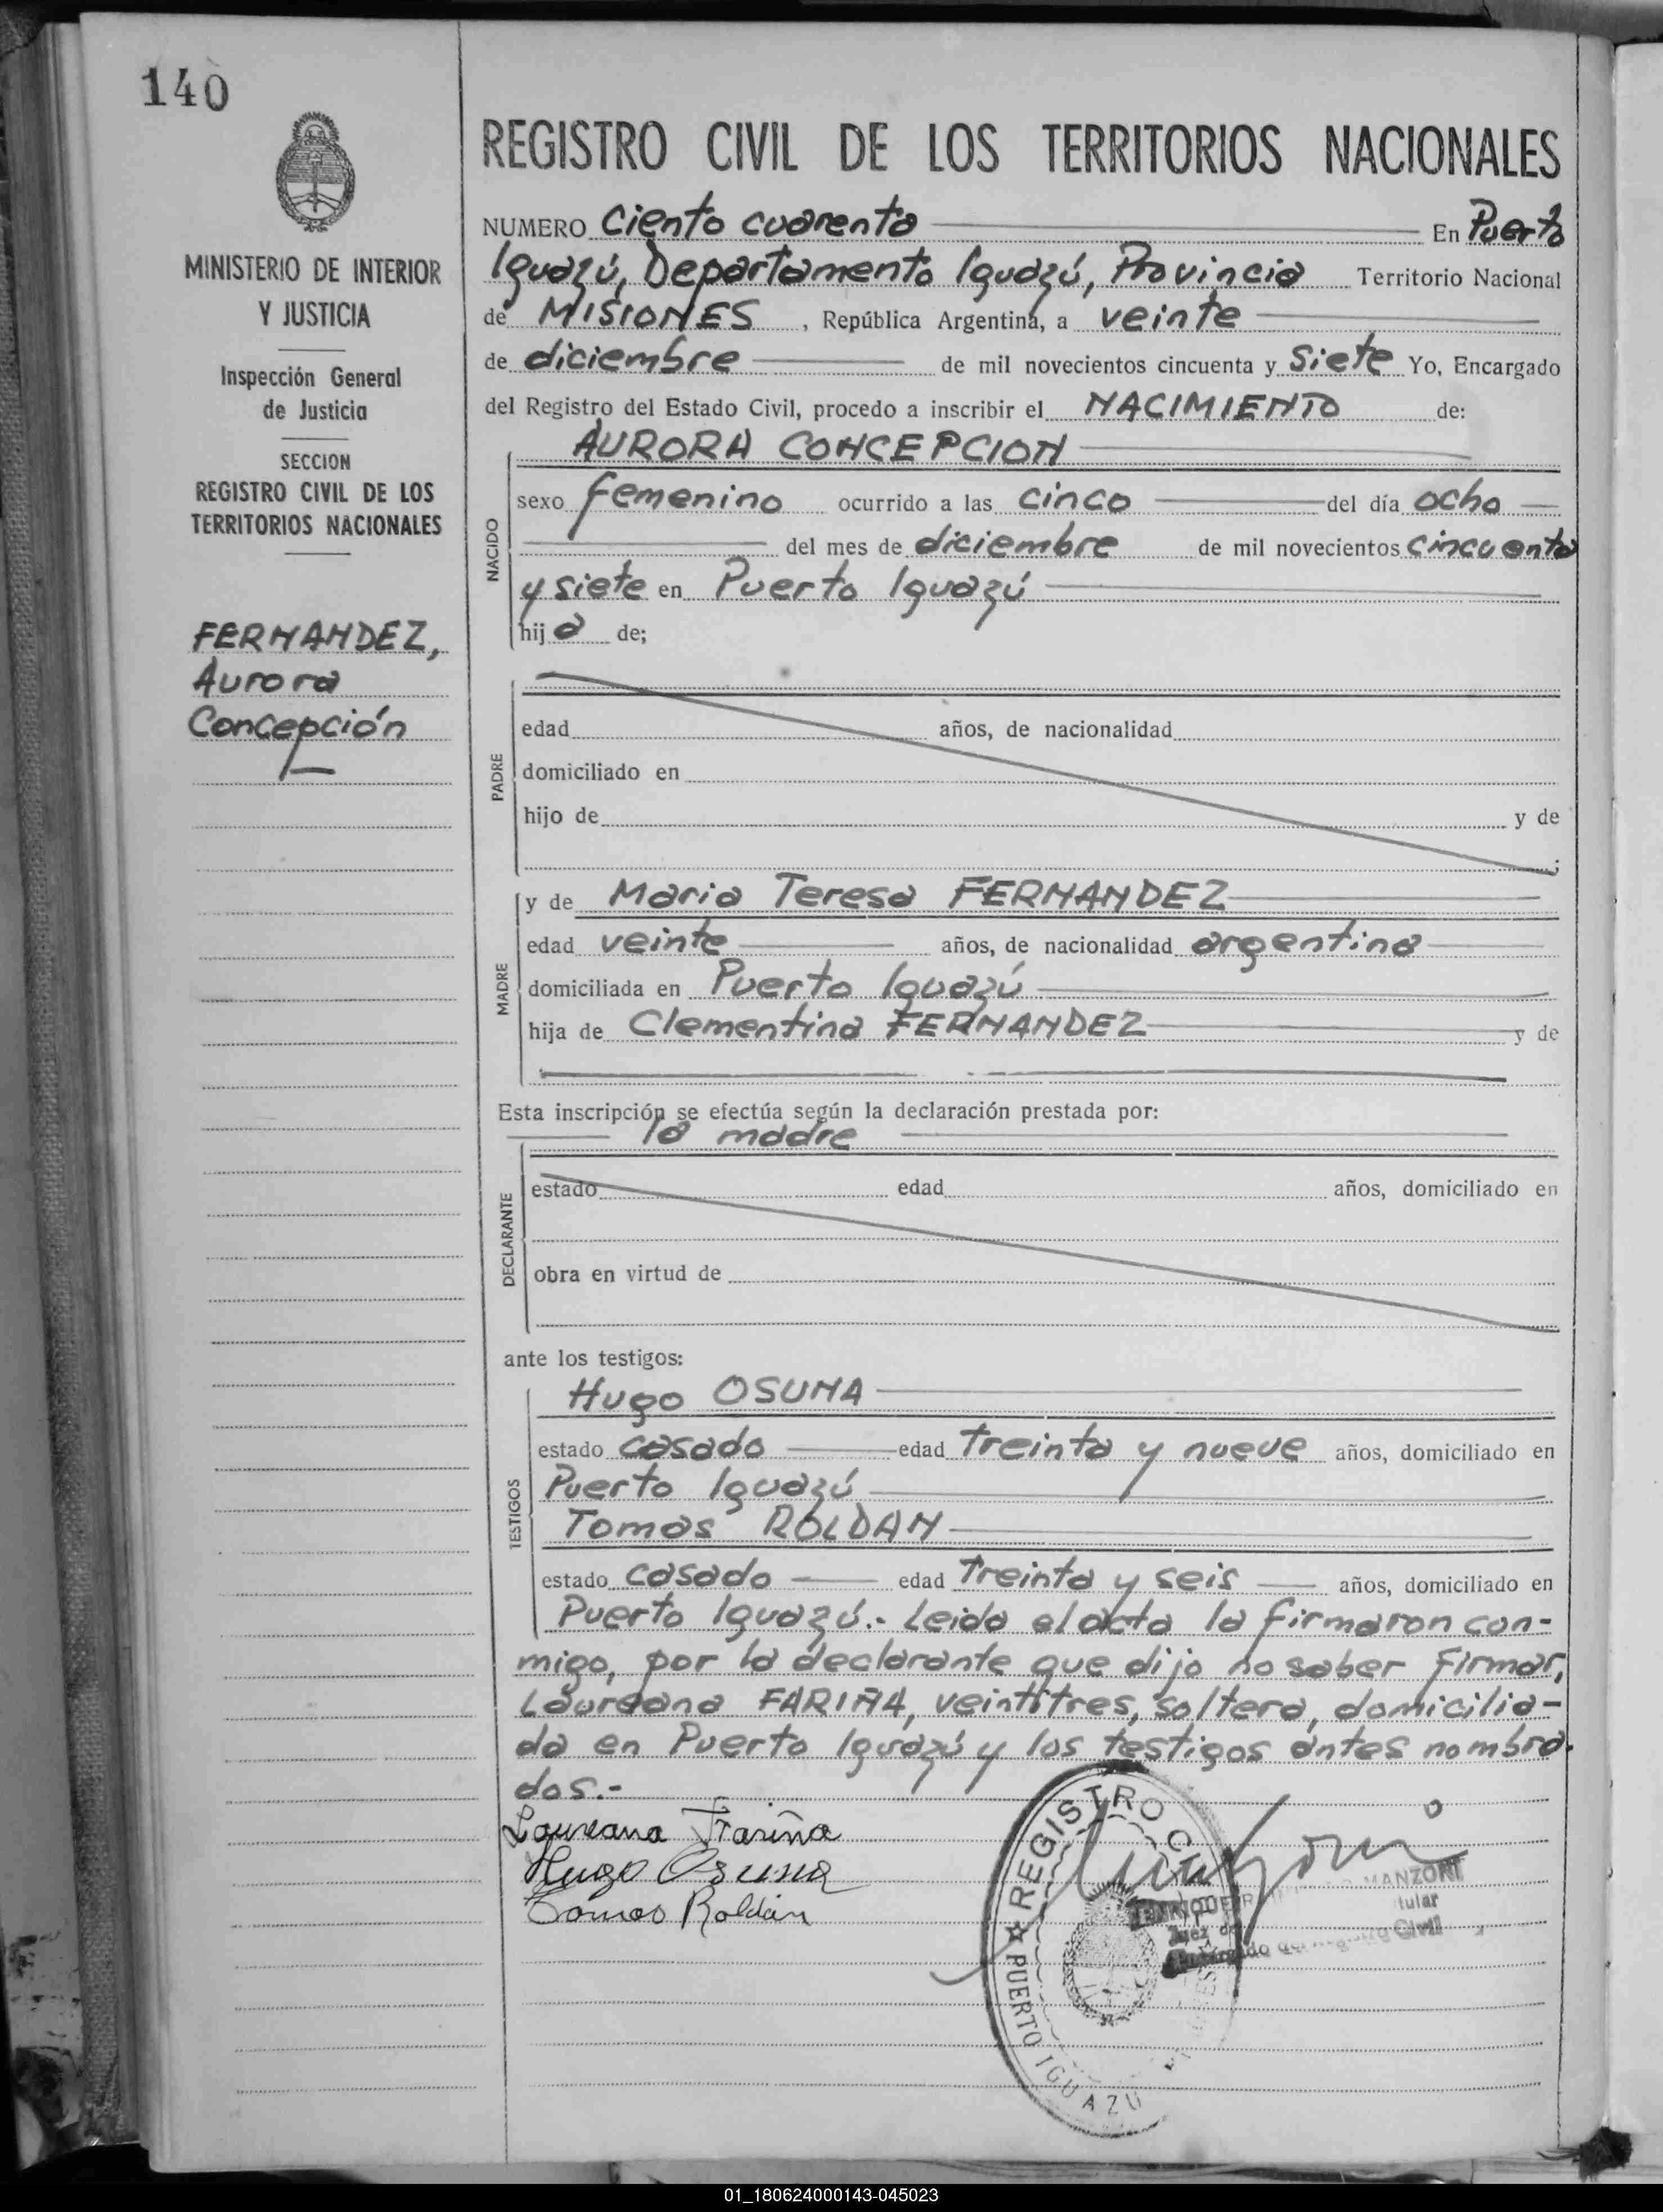 140
MINISTERIO DE INTERIOR
Y JUSTICIA
Inspección General
de Justicia
SECCION
REGISTRO CIVIL DE LOS
TERRITORIOS NACIONALES
FERNANDEZ,
Aurora
Concepción
REGISTRO CIVIL DE LOS TERRITORIOS NACIONALES
NUMERO Ciento cuarenta En Puerto
Iguazú, Departamento Iguazú, Provincia Territorio Nacional
de MISIONES, República Argentina, a veinte
de diciembre de mil novecientos cincuenta y siete Yo, Encargado
del Registro del Estado Civil, procedo a inscribir el NACIMIENTO de:
AURORA CONCEPCION
NACIDO
sexo femenino ocurrido a las cinco del día ocho
del mes de diciembre de mil novecientos cincuenta
y siete en Puerto Iguazú
hija de;
PADRE
edad años, de nacionalidad
domiciliado en
hijo de y de
;
MADRE
y de Maria Teresa FERNANDEZ
edad veinte años, de nacionalidad argentina
domiciliada en Puerto Iguazú
hija de Clementina FERNANDEZ y de
Esta inscripción se efectúa según la declaración prestada por:
la madre
DECLARANTE
estado edad años, domiciliado en
obra en virtud de
ante los testigos:
TESTIGOS
Hugo OSUNA
estado casado edad treinta y nueve años, domiciliado en
Puerto Iguazú
Tomas ROLDAN
estado casado edad treinta y seis años, domiciliado en
Puerto Iguazú.- Leida el acta la firmaron con-
migo, por la declarante que dijo no saber firmar,
Laureana FARIÑA, veintitres, soltera, domicilia-
da en Puerto Iguazú y los testigos antes nombra-
dos.-
Laureana Fariña
Hugo Osuna
Tomas Roldán
REGISTRO C
PUERTO IGUAZU
MANZONI
tular
Juez de
Encargado del Registro Civil
01_180624000143-045023